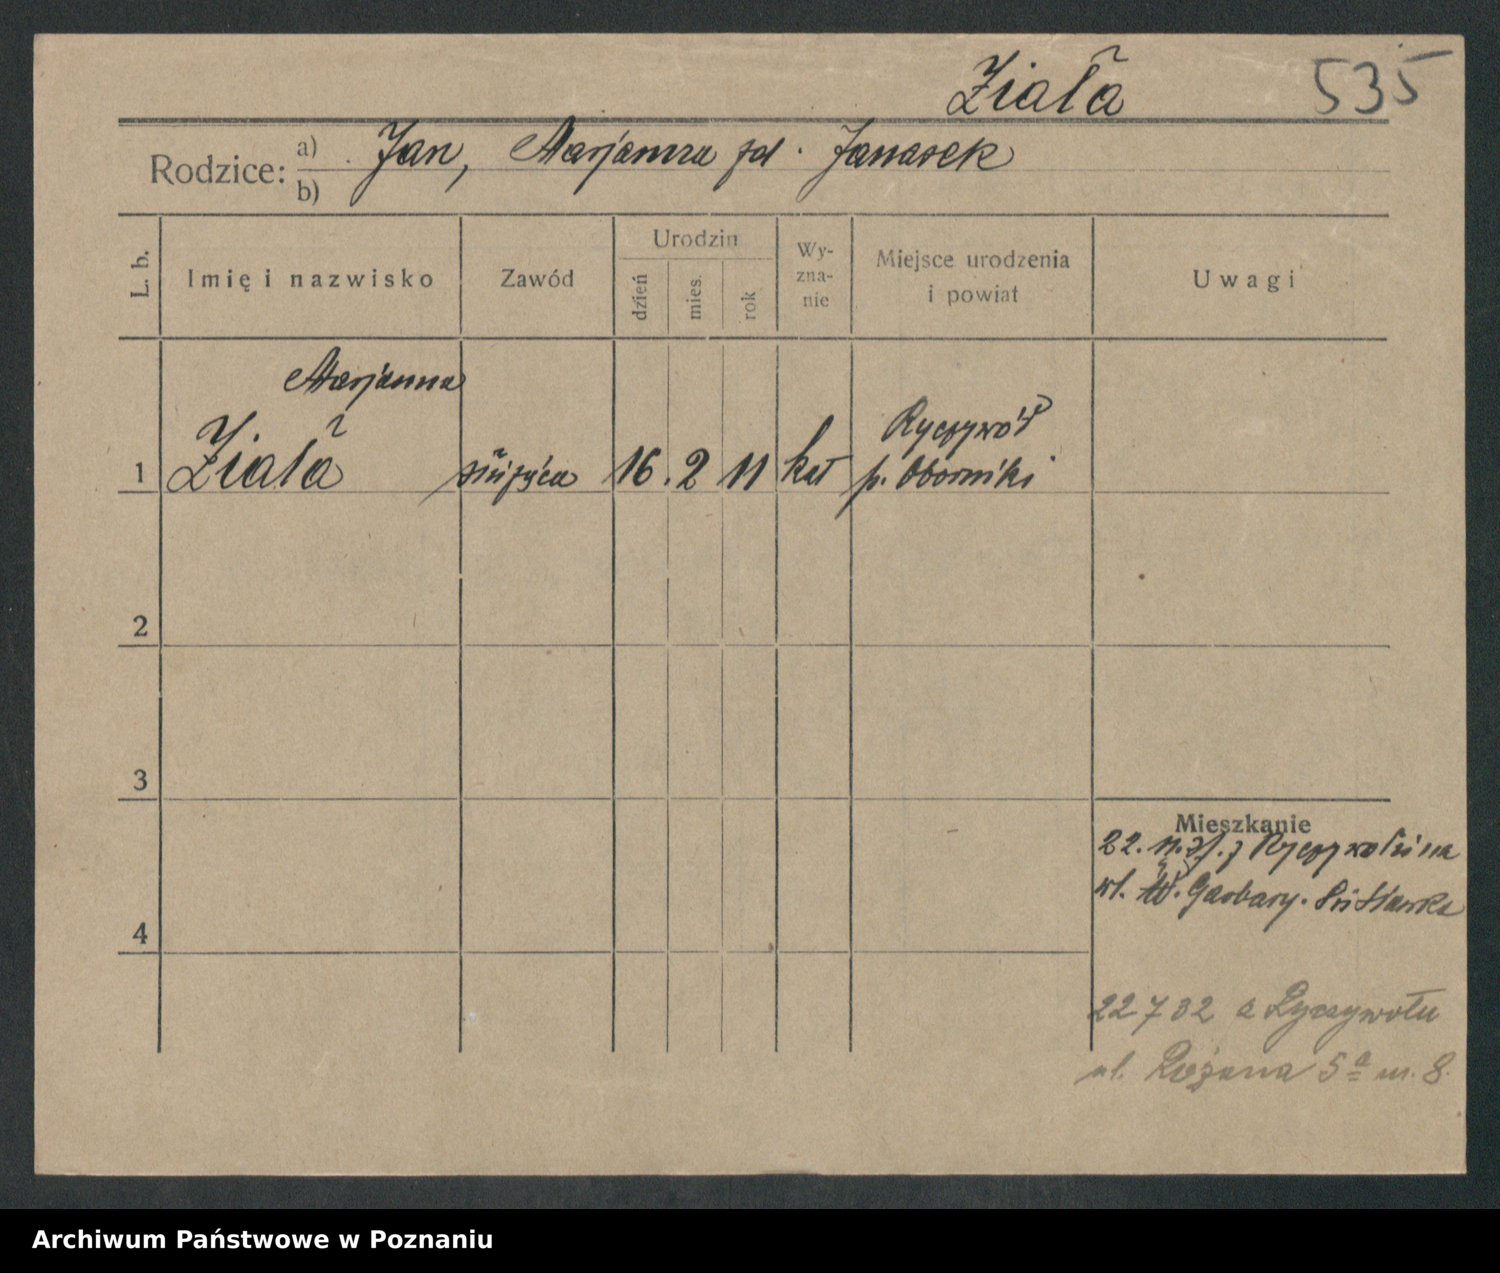 Ziała 535
Rodzice: a) Jan, Marjanna zd. Janasek
b)
L. b. Imię i nazwisko Zawód Urodzin dzień mies. rok Wy-zna-nie Miejsce urodzenia i powiat Uwagi
Marjanna
Ziała
1 służąca 16. 2 11 kat Ryczywół
p. Oborniki
2
3
Mieszkanie
22. z Ryczywołu na
W. Garbary.
4
22 7 32 z Ryczywołu
ul. Różana 5a m. 8.
Archiwum Państwowe w Poznaniu